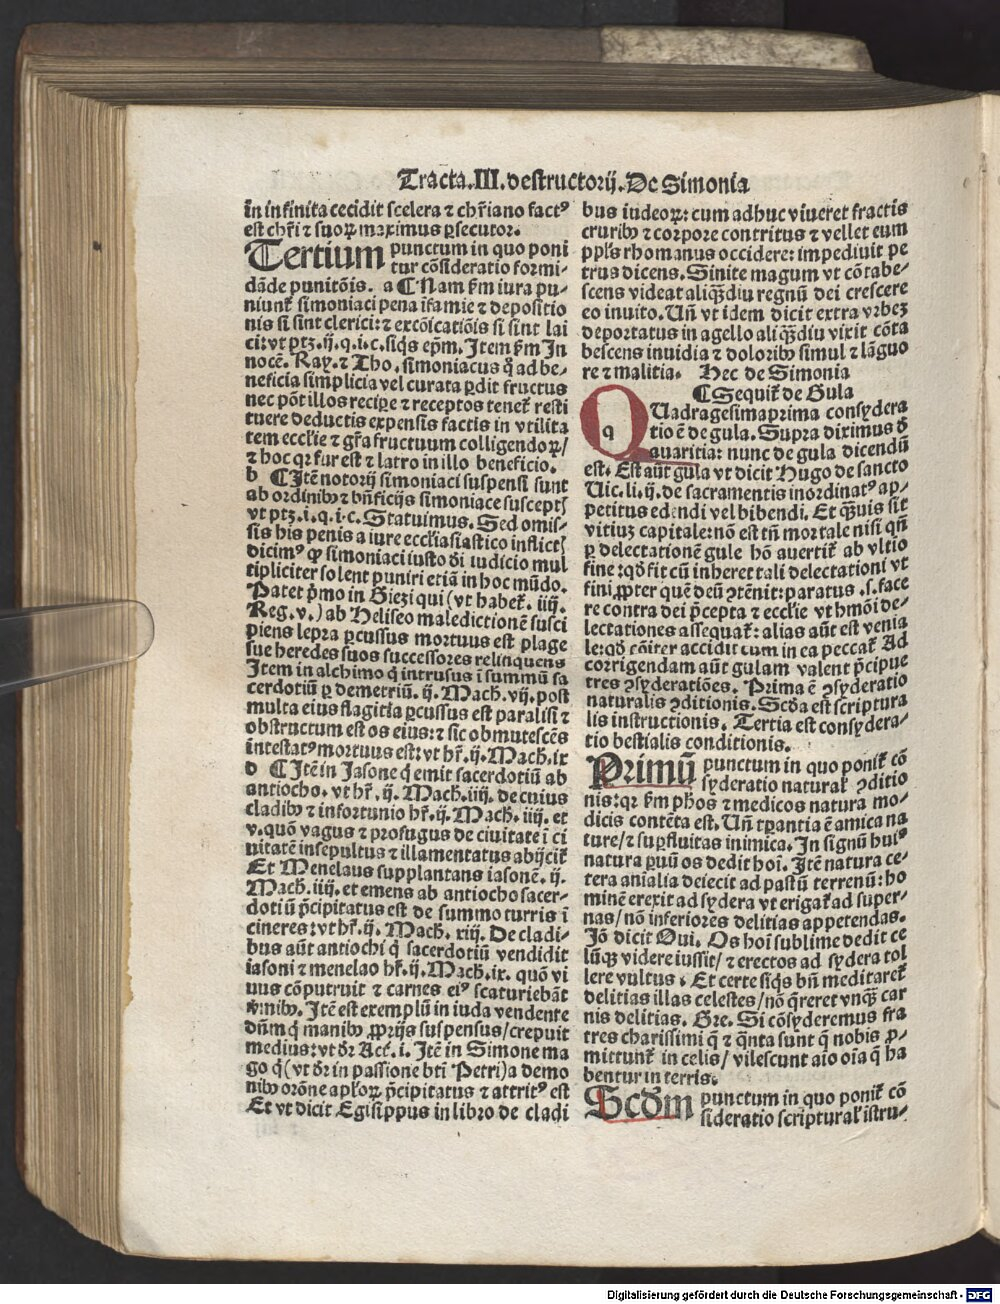 Tracta.III.destructorij.De Simonia
in infinita cecidit scelera ⁊ chr̄iano factꝰ
est chr̄i ⁊ suoꝝ maximus ꝑsecutor.
Tertium punctum in quo poni
tur cōsideratio formi-
dāde punitōis. a ¶ Nam ẜm iura pu-
niunt᷑ simoniaci pena ifamie ⁊ depositio
nis si sint clerici: ⁊ excōicatiōis si sint lai
ci: vt ptꝫ.ij.q.i.c.siq̄s ep̄m. Item ẜm In
nocē. Ray. ⁊ Tho. simoniacus q̇ ad be-
neficia simplicia vel curata ꝑdit fructus
nec pōt illos recipe ⁊ receptos tenet᷑ resti
tuere deductis expensis factis in vtilita
tem eccl'ie ⁊ gr̄a fructuum colligendoꝝ/
⁊ hoc qr fur est ⁊ latro in illo beneficio.
b ¶ Itē notorij simoniaci suspensi sunt
ab ordinibꝰ ⁊ bn̄ficijs simoniace susceptꝭ
vt ptꝫ.i.q.i.c. Statuimus. Sed omis-
sis his penis a iure eccl'iasiastico inflictꝭ
dicimꝰ ꝙ simoniaci iusto di iudicio mul
tipliciter solent puniri etiā in hoc mūdo.
Patet pͥmo in Giezi qui (vt habet᷑. iiij.
Reg.v.) ab Heliseo maledictionē susci
piens lepra ꝑcussus mortuus est plage
sue heredes suos successores relinquens
Item in alchimo q̇ intrusus ī summū sa
cerdotiū ꝑ demetriū. ij. Mach. vij. post
multa eius flagitia ꝑcussus est paralisi ⁊
obstructum est os eius: ⁊ sic obmutescēs
intestatꝰ mortuus est: vt hr̄. ij. Mach. ix
d ¶ Itē in Jasone q̇ emit sacerdotiū ab
antiocho. vt hr̄. ij. Mach. iiij. de cuius
cladibꝰ ⁊ infortunio hr̄. ij. Mach. iiij. et
v. quō vagus ⁊ profugus de ciuitate ī ci
uitatē insepultus ⁊ illamentatus abijcit᷑
Et Menelaus supplantans iasonē. ij.
Mach. iiij. et emens ab antiocho sacer-
dotiū p̄cipitatus est de summo turris ī
cineres: vt hr̄. ij. Mach. xiij. De cladi-
bus aūt antiochi q̇ sacerdotiū vendidit
iasoni ⁊ menelao hr̄. ij. Mach. ix. quō vi
uus cōputruit ⁊ carnes eiꝰ scaturiebāt
v̓mibꝰ. Itē est exemplū in iuda vendente
dn̄m q̇ manibꝰ ꝓprijs suspensus/crepuit
medius: vt dr̄ Act. i. Itē in Simone ma
go q̇ (vt dr̄ in passione bti Petri) a demo
nibꝰ orōne apl'oꝝ p̄cipitatus ⁊ attritꝰ est
Et vt dicit Egisippus in libro de cladi
bus iudeoꝝ: cum adhuc viueret fractis
cruribꝰ ⁊ corpore contritus ⁊ vellet eum
ppl's rhomanus occidere: impediuit pe
trus dicens. Sinite magum vt cōtabe-
scens videat aliqͣdiu regnū dei crescere
eo inuito. Un̄ vt idem dicit extra vrbeꝫ
deportatus in agello aliqͣdiu vixit cōta
bescens inuidia ⁊ doloribꝰ simul ⁊ lāguo
re ⁊ malitia. Hec de Simonia
¶ Sequit᷑ de Gula
q
QUadragesimaprima consydera
tio ē de gula. Supra diximus d̓
auaritia: nunc de gula dicendū
est. Est aūt gula vt dicit Hugo de sancto
Uic. li. ij. de sacramentis inordinatꝰ ap-
petitus edendi vel bibendi. Et qͣuis sit
vitiuꝫ capitale: nō est tn̄ mortale nisi qn̄
ꝑ delectationē gule hō auertit᷑ ab vltio
fine: qd̓ fit cū inheret tali delectationi vt
fini ꝓpter quē deū ꝯtēnit: paratus .s. face
re contra dei p̄cepta ⁊ eccl'ie vt hmōi de-
lectationes assequat᷑: alias aūt est venia
le: qd̓ cōiter accidit cum in ea peccat᷑ Ad
corrigendam aūt gulam valent p̄cipue
tres ꝯsyderatiōes. Prima ē ꝯsyderatio
naturalis ꝯditionis. Scd̓a est scriptura
lis instructionis. Tertia est consydera-
tio bestialis conditionis.
Primū punctum in quo ponit᷑ cō
syderatio natural' ꝯditio
nis: qr ẜm ph̓os ⁊ medicos natura mo-
dicis contēta est. Un̄ tꝑantia ē amica na
ture/ ⁊ suꝑfluitas inimica. In signū huiꝰ
natura ꝑuū os dedit hoi. Itē natura ce-
tera anialia deiecit ad pastū terrenū: ho
minē erexit ad sydera vt erigat᷑ ad super-
nas/ nō inferiores delitias appetendas.
Jō dicit Oui. Os hoi sublime dedit ce
lūqꝫ videre iussit/ ⁊ erectos ad sydera tol
lere vultus. Et certe siq̄s bn̄ meditaret᷑
delitias illas celestes/ nō q̄reret vnqͣ car
nis delitias. Gre. Si cōsyderemus fra
tres charissimi q̄ ⁊ qͣnta sunt q̄ nobis ꝓ-
mittunt᷑ in celis/ vilescunt aīo oīa q̄ ha
bentur in terris.
Scd̓m punctum in quo ponit᷑ cō
sideratio scriptural' istru-
Digitalisierung gefördert durch die Deutsche Forschungsgemeinschaft - DFG